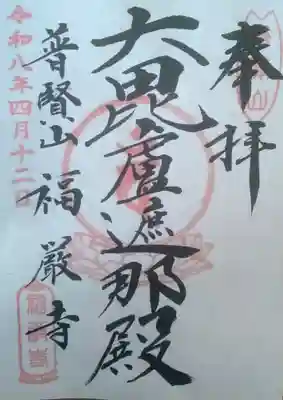 奉拝
大毘盧遮那殿
普賢山 福厳寺
令和八年四月十二日